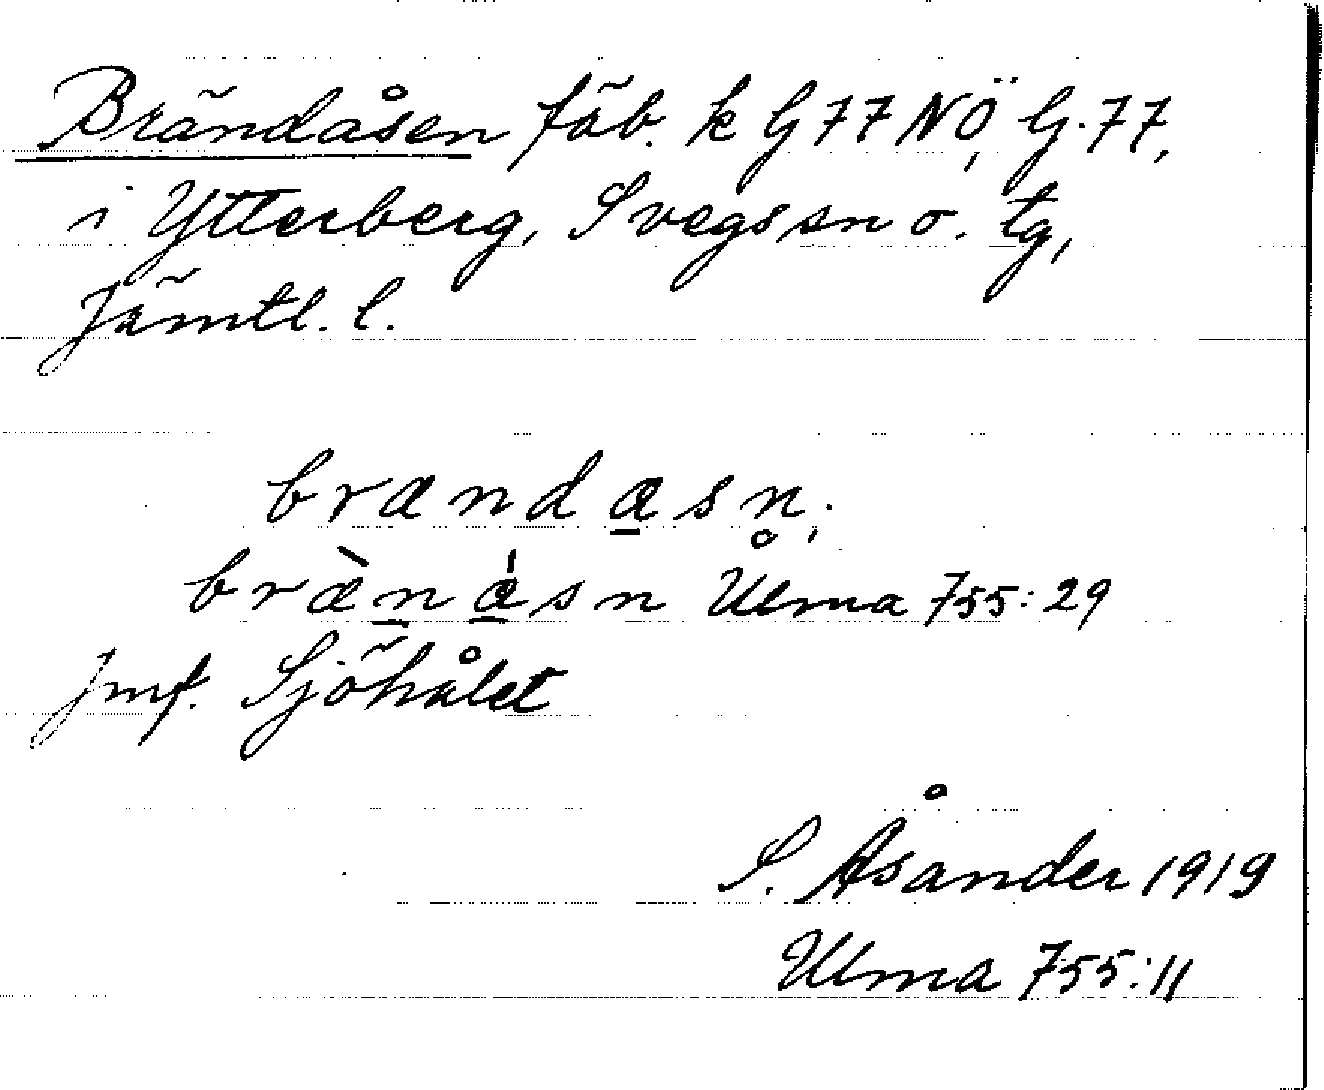 Brändåsen fäb. k G 77 NÖ, G. 77,
i Ytterberg, Svegs sn o. tg,
Jämtl. l.
brændæsn̥;
bræ̀næ̍sn Ulma 755:29
Jmf. Sjöhålet
S. Åsander 1919
Ulma 755:11